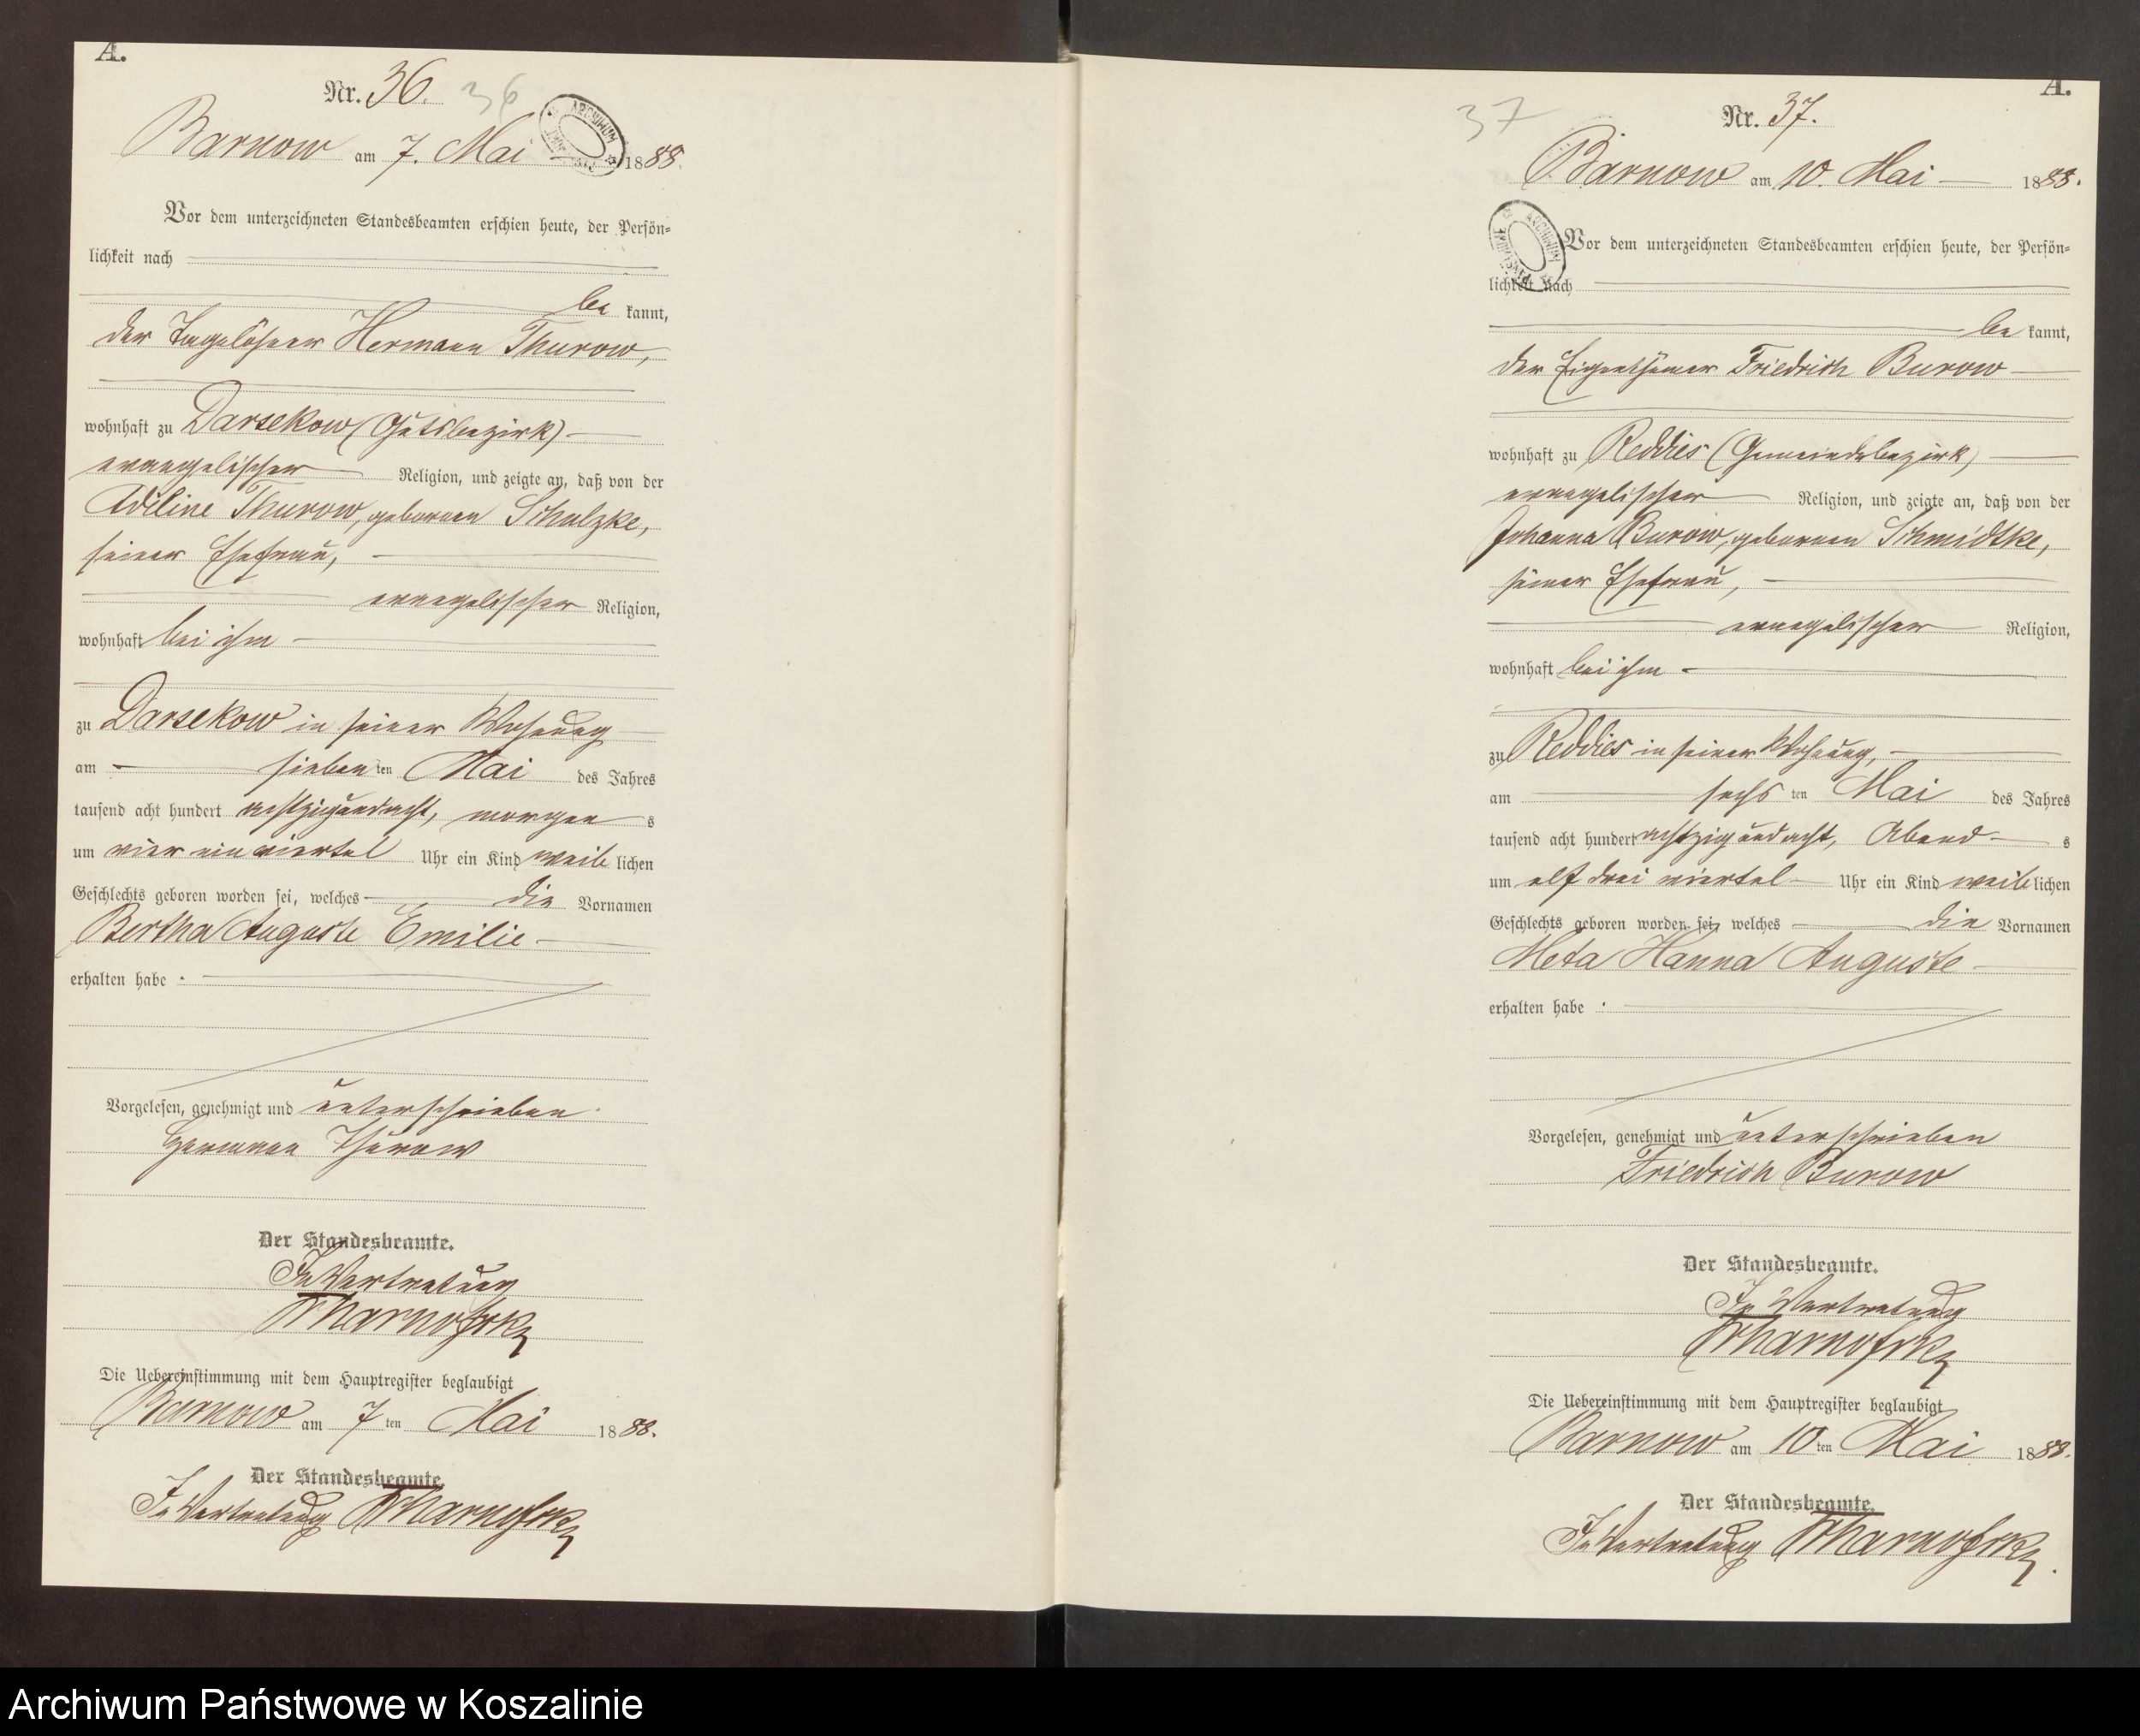 A.
Nr. 36. 36
ARCHIWUM
Barnow am 7. Mai 1888.
Vor dem unterzeichneten Standesbeamten erschien heute, der Persön-
lichkeit nach
be kannt,
der Tagelöhner Hermann Thurow,
wohnhaft zu Darsekow (Gutsbezirk)
evangelischer Religion, und zeigte an, daß von der
Adeline Thurow, geborenen Schulzke,
seiner Ehefrau,
evangelischer Religion,
wohnhaft bei ihm
zu Darsekow in seiner Wohnung
am sieben ten Mai des Jahres
tausend acht hundert achtzigundacht, morgen s
um vier ein viertel Uhr ein Kind weib lichen
Geschlechts geboren worden sei, welches die Vornamen
Bertha Auguste Emilie
erhalten habe .
Vorgelesen, genehmigt und unterschrieben.
Hermann Thurow
Der Standesbeamte.
In Vertretung
Die Uebereinstimmung mit dem Hauptregister beglaubigt
Barnow am 7 ten Mai 1888.
Der Standesbeamte.
In Vertretung
A.
37 Nr. 37.
Barnow am 10. Mai 1888.
ARCHIWUM
Vor dem unterzeichneten Standesbeamten erschien heute, der Persön-
lichkeit nach
be kannt,
der Eigenthümer Friedrich Burow
wohnhaft zu Reddies (Gemeindebezirk)
evangelischer Religion, und zeigte an, daß von der
Johanna Burow, geborenen Schmidtke,
seiner Ehefrau,
evangelischer Religion,
wohnhaft bei ihm
zu Reddies in seiner Wohnung,
am sechs ten Mai des Jahres
tausend acht hundert achtzigundacht, Abend s
um elf drei viertel Uhr ein Kind weib lichen
Geschlechts geboren worden sei, welches die Vornamen
Meta Hanna Auguste
erhalten habe .
Vorgelesen, genehmigt und unterschrieben
Friedrich Burow
Der Standesbeamte.
In Vertretung
Die Uebereinstimmung mit dem Hauptregister beglaubigt
Barnow am 10 ten Mai 1888.
Der Standesbeamte.
In Vertretung
Archiwum Państwowe w Koszalinie